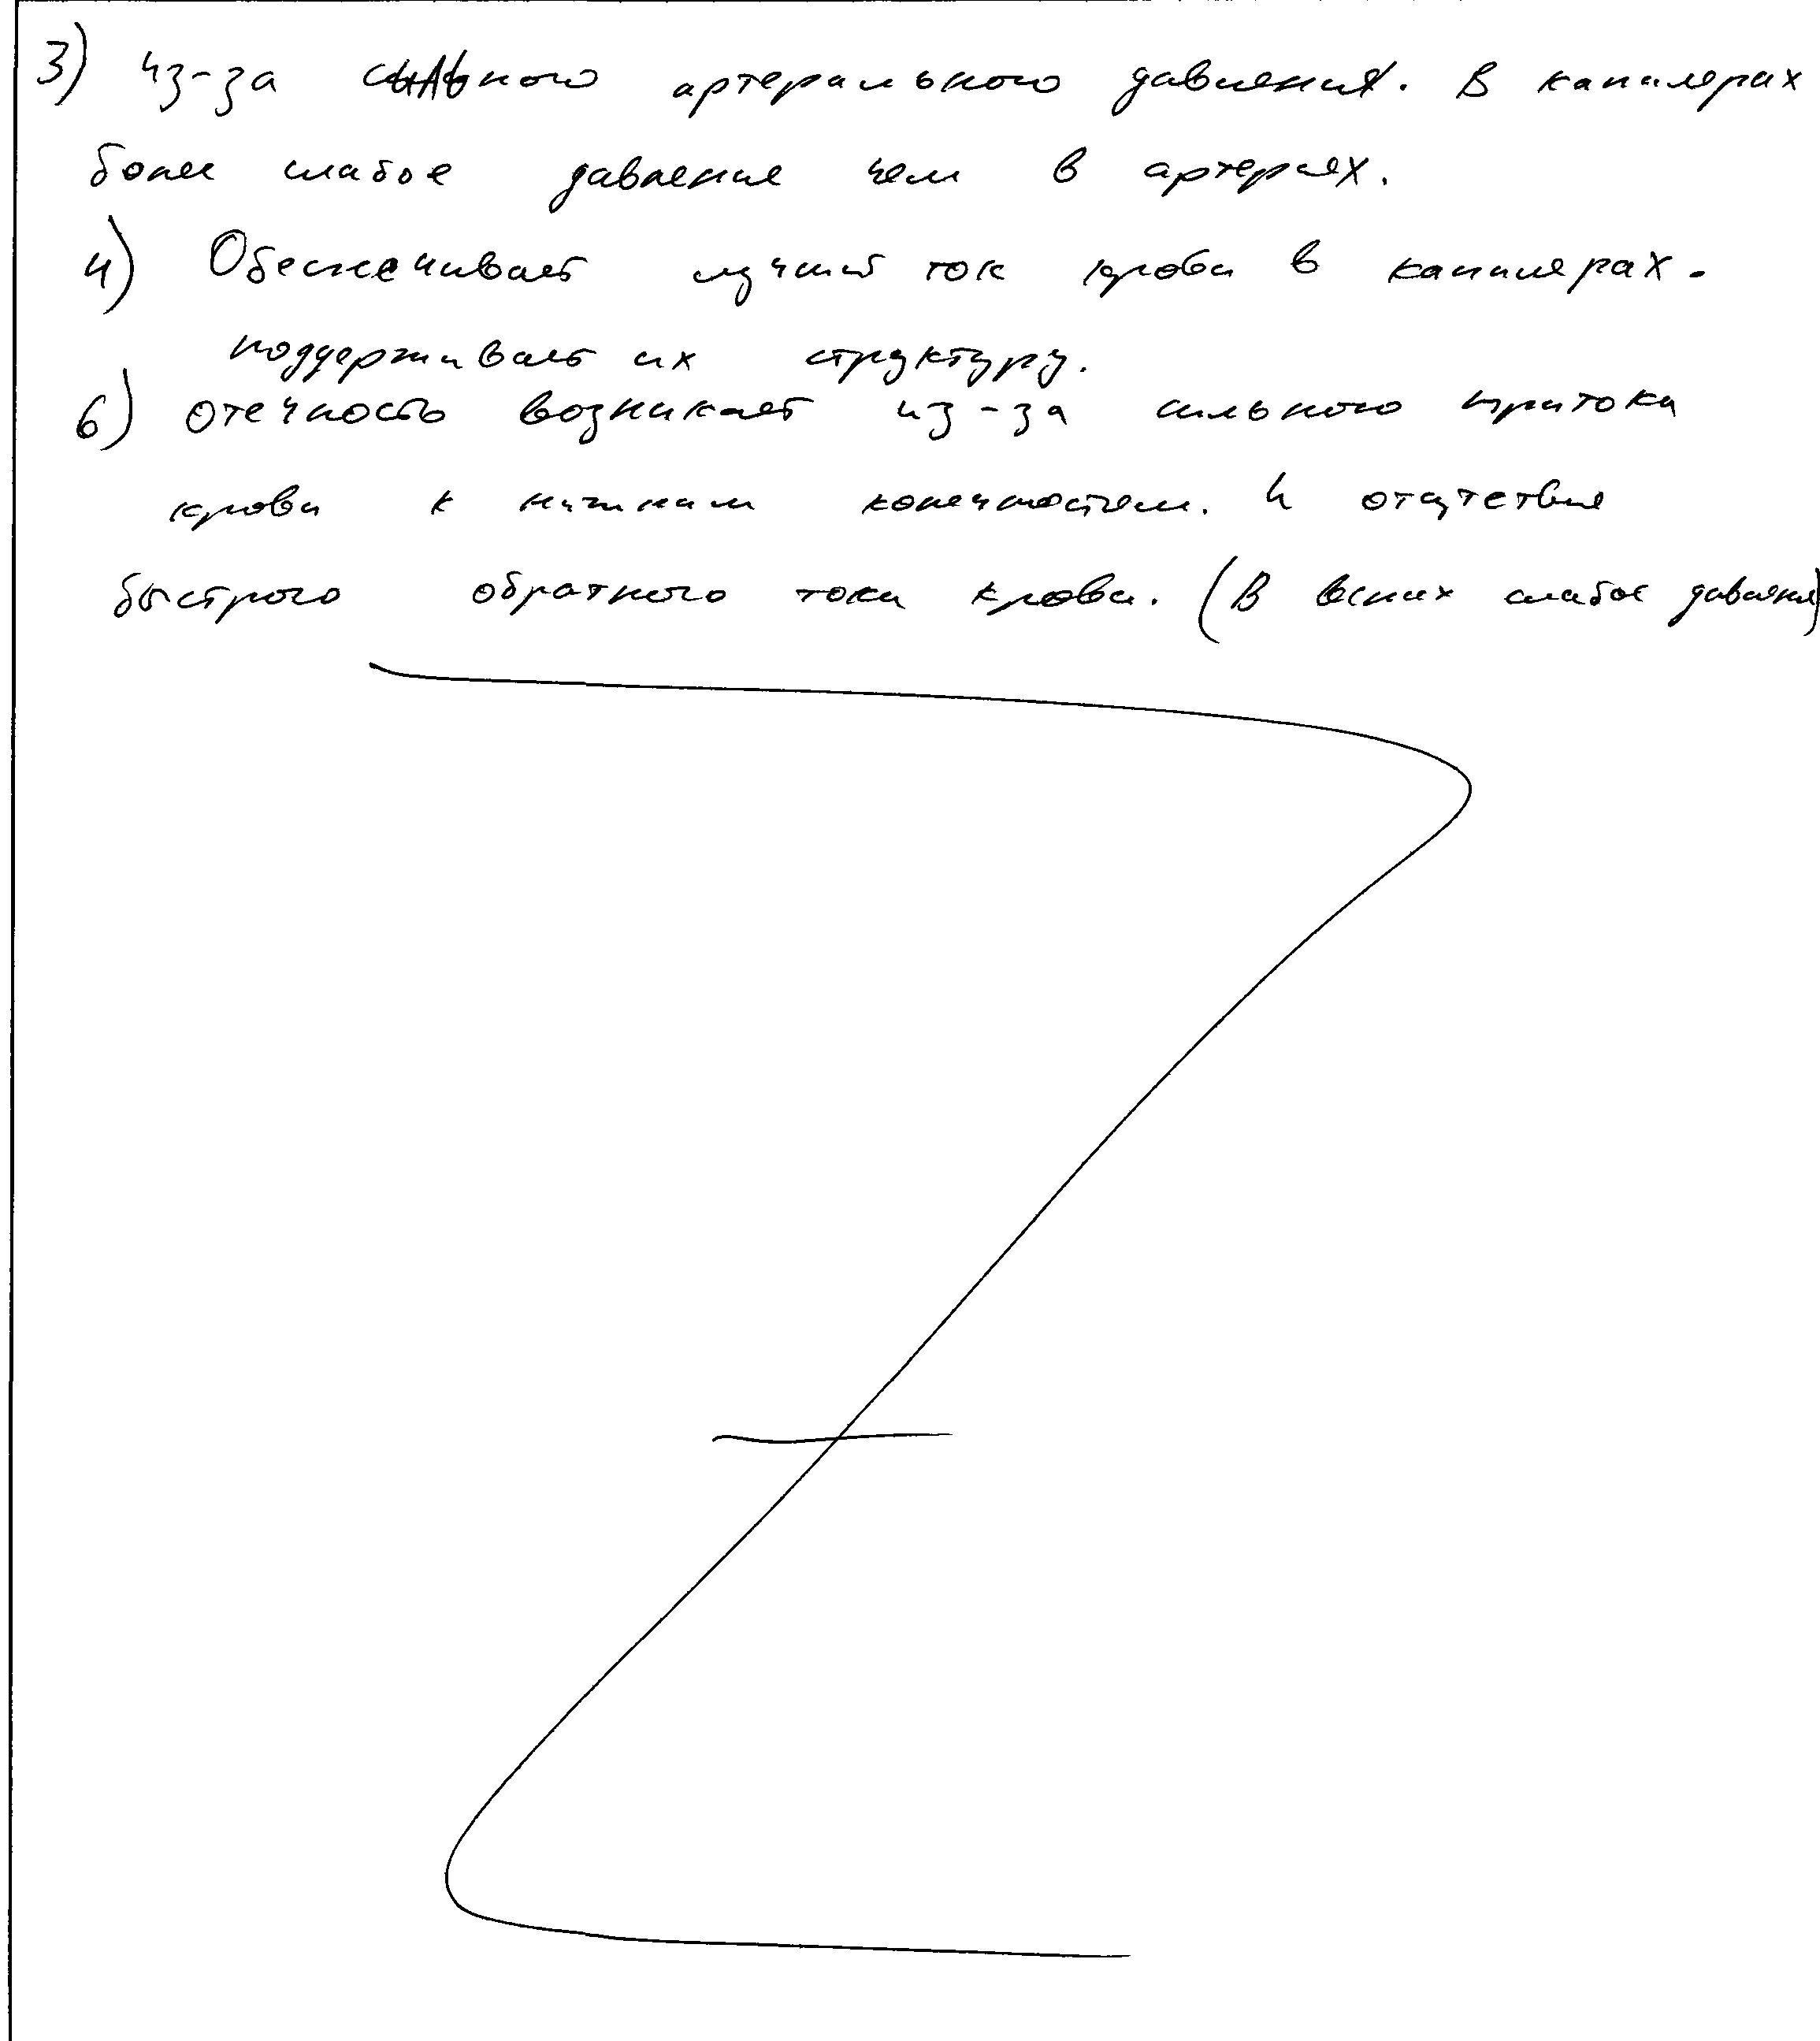 3) из-за сильного артерального давления. В капилярах
более слабое давление чем в артериях.
4) Обеспечивает лучший ток крови в капилярах.
поддерживает их структуру.
6) отечность возникает из-за сильного притока
крови к нижним конечностям. И отсутствие
быстрого обратного тока крови. (В венах слабое давление)